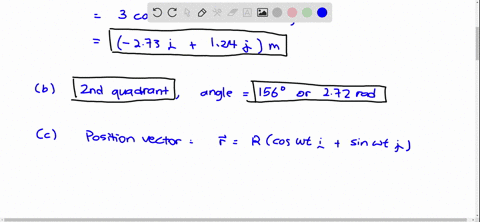 = 3 co
= (-2.73 i + 1.24 j) m
(b) 2nd quadrant, angle = 156° or 2.72 rad
(c) Position vector = r⃗ = R (cos ωt i + sin ωt j)